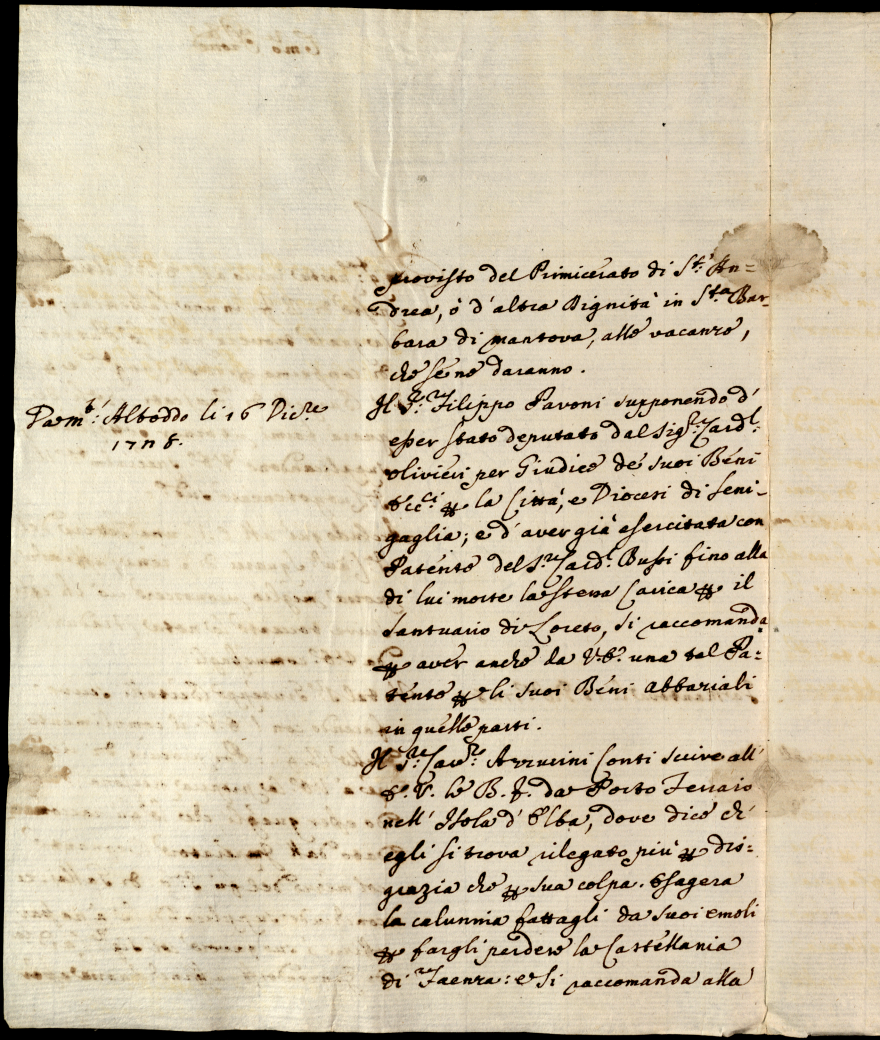 provisto del Primicerato di S.t An=
drea, ò d'altra Dignità in S.ta Bar-
bara di Mantova, alle vacanze,
che se ne daranno.
li 16 Dic.re
Il S.r Filippo Pavoni supponendo d'
esser stato deputato dal Sig.r Card.l
Olivieri per Giudice de suoi Beni
Ecc.ci la Città, e Diocesi di Seni-
gaglia; e d'aver già esercitata con
Patente del S.r Card.l Bussi fino alla
di lui morte la stessa Carica il
Santuario di Loreto, si raccomanda
aver anche da V.E. una tal Pa=
tente li suoi Beni Abbaziali
in quelle parti.
Il S.r Cav.re Azzurini Conti scrive all'
E.V. le B.F. da Porto Ferraio
nell'Isola d'Elba, dove dice ch'
egli si trova rilegato più dis=
grazia che sua colpa. Esagera
la calunnia fattagli da suoi emoli
fargli perdere la Castellania
di Faenza: e si raccomanda alla